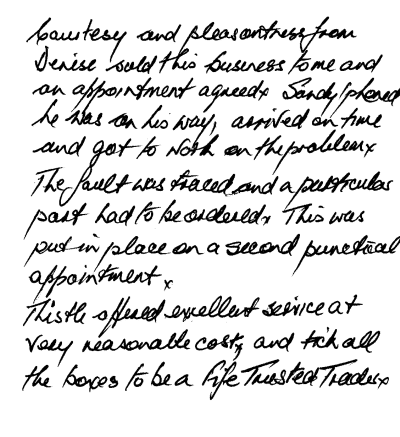 Courtesy and pleasantness from
Denise sold this business to me and
an appointment agreed. Sandy phoned
he was on his way, arrived on time
and got to work on the problem.
The fault was traced and a particular
part had to be ordered. This was
put in place on a second punctual
appointment.
Thistle offered excellent service at
very reasonable cost, and tick all
the boxes to be a Fife Trusted Trader.